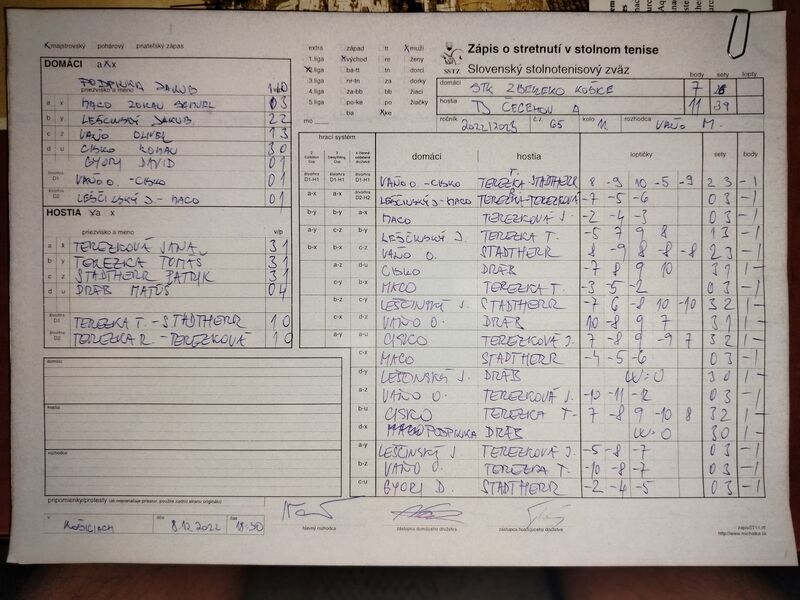 X majstrovský pohárový priateľský zápas
DOMÁCI a X x
PODPINKA JAKUB
priezvisko a meno v/p
a x MACO ZORAN SAMUEL 0 3
b y LEŠČINSKÝ JAKUB 2 2
c z VAŇO OLIVER 1 3
d u CISKO ROMAN 3 0
GYORI DAVID 0 1
štvorhra D1 VAŇO O. - CISKO 0 1
štvorhra D2 LEŠČINSKÝ J - MACO 0 1
HOSTIA x/a x
priezvisko a meno v/p
a x TEREZKOVÁ JANA 3 1
b y TEREZKA TOMÁŠ 3 1
c z STADTHERR PATRIK 3 1
d u DRÁB MATÚŠ 0 4
štvorhra D1 TEREZKA T. - STADTHERR 1 0
štvorhra D2 TEREZKA R. - TEREZKOVÁ 1 0
domáci
hostia
rozhodca
pripomienky/protesty (ak nepostačuje priestor, použite zadnú stranu originálu)
v KOŠICIACH dňa 8.12.2022 čas 18:30
extra západ n-tt X muži
1.liga X východ nr ženy
X 2.liga ba-tt tn dorci
3.liga nr-tn za dorky
4.liga za-bb bb žiaci
5.liga po-ke po žiačky
ba X ke
mo
SSTZ
Zápis o stretnutí v stolnom tenise
Slovenský stolnotenisový zväz
body sety lopty
domáci STK ZBEREKO KOŠICE 7
hostia TJ CECEHOV A 11 39
ročník 2022/2023 č.z. 65 kolo 11 rozhodca VAŇO M.
hrací systém domáci hostia loptičky sety body
štvorhra D1-H1 VAŇO O. - CISKO TEREZKA T. - STADTHERR 8 -9 10 -5 -9 2 3 -1
a-x LEŠČINSKÝ J - MACO TEREZKA R - TEREZKOVÁ -7 -5 -6 0 3 -1
b-y MACO TEREZKOVÁ J. -2 -4 -3 0 3 -1
a-y LEŠČINSKÝ J. TEREZKA T. -5 7 9 8 1 3 -1
b-x VAŇO O. STADTHERR 8 -9 8 -8 -8 2 3 -1
a-z d-u CISKO DRÁB -7 8 9 10 3 1 1-
c-y b-x MACO TEREZKA T. -3 -5 -2 0 3 -1
b-z c-y LEŠČINSKÝ J. STADTHERR -7 6 -8 10 -10 3 2 1-
c-x d-z VAŇO O. DRÁB 10 -8 9 7 3 1 1-
a-y a-u CISKO TEREZKOVÁ J. 7 -8 9 -9 7 3 2 1-
c-x MACO STADTHERR -4 -5 -6 0 3 -1
d-y LEŠČINSKÝ J. DRÁB W:O 3 0 1-
a-z VAŇO O. TEREZKOVÁ J. -10 -11 -12 0 3 -1
b-u CISKO TEREZKA T. 7 -8 9 -10 8 3 2 1-
d-x PODPINKA DRÁB W:O 3 0 1-
a-y LEŠČINSKÝ J. TEREZKOVÁ J. -5 -8 -7 0 3 -1
b-z VAŇO O. TEREZKA T. -10 -8 -7 0 3 -1
c-u GYORI D. STADTHERR -2 -4 -5 0 3 -1
hlavný rozhodca
zástupca domáceho družstva
zástupca hosťujúceho družstva
zapisST11.rtf
http://www.michalka.sk